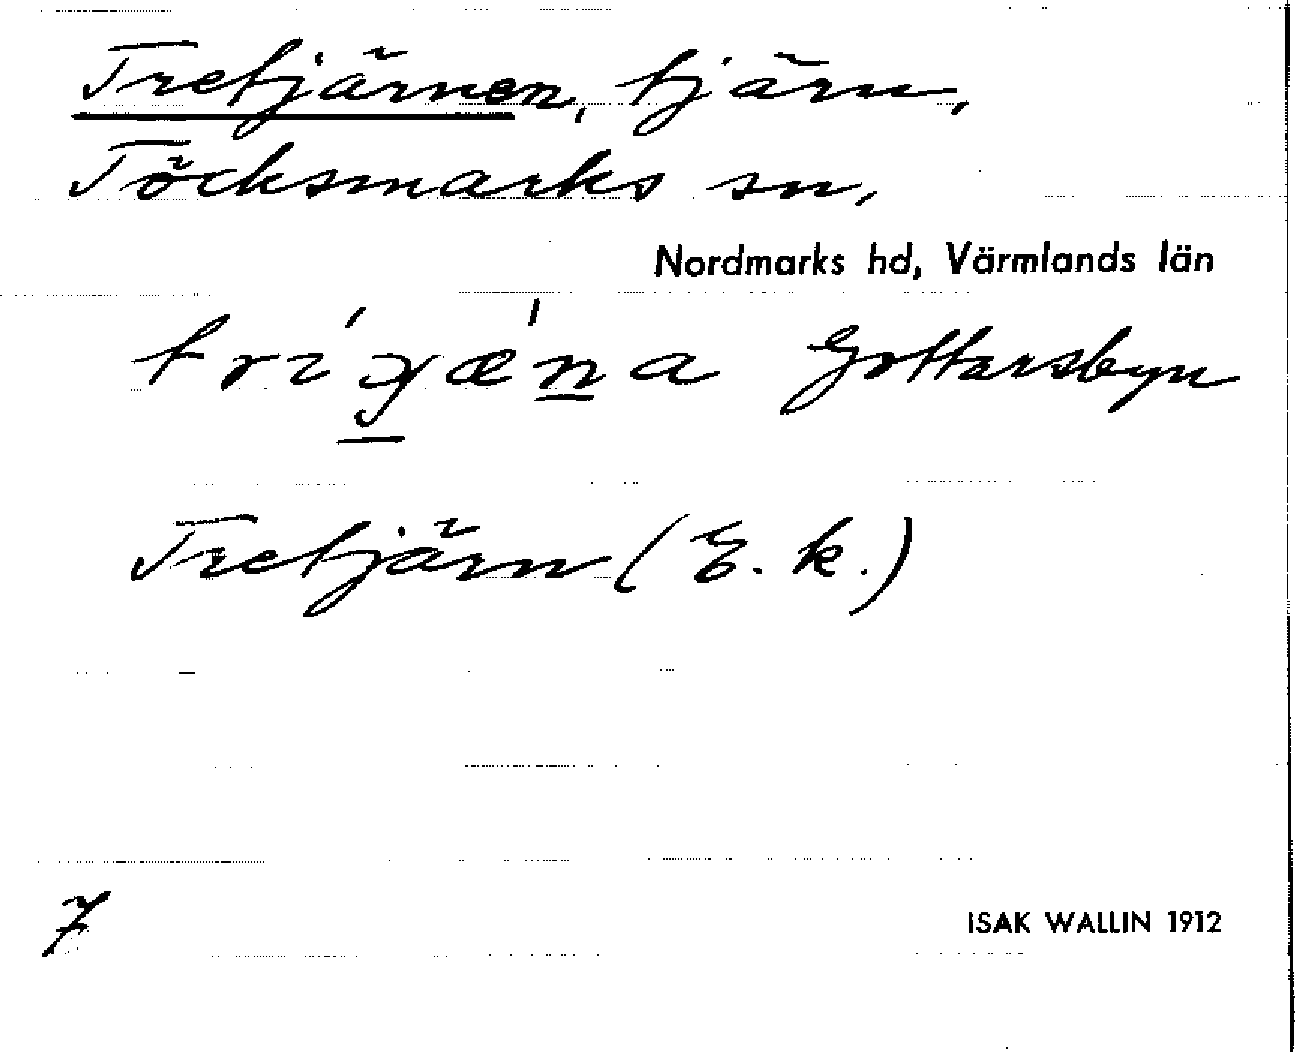 Tretjärnen, tjärn,
Töcksmarks sn,
Nordmarks hd, Värmlands län
Gottarsbyn
Tretjärn (E. k.)
7
ISAK WALLIN 1912